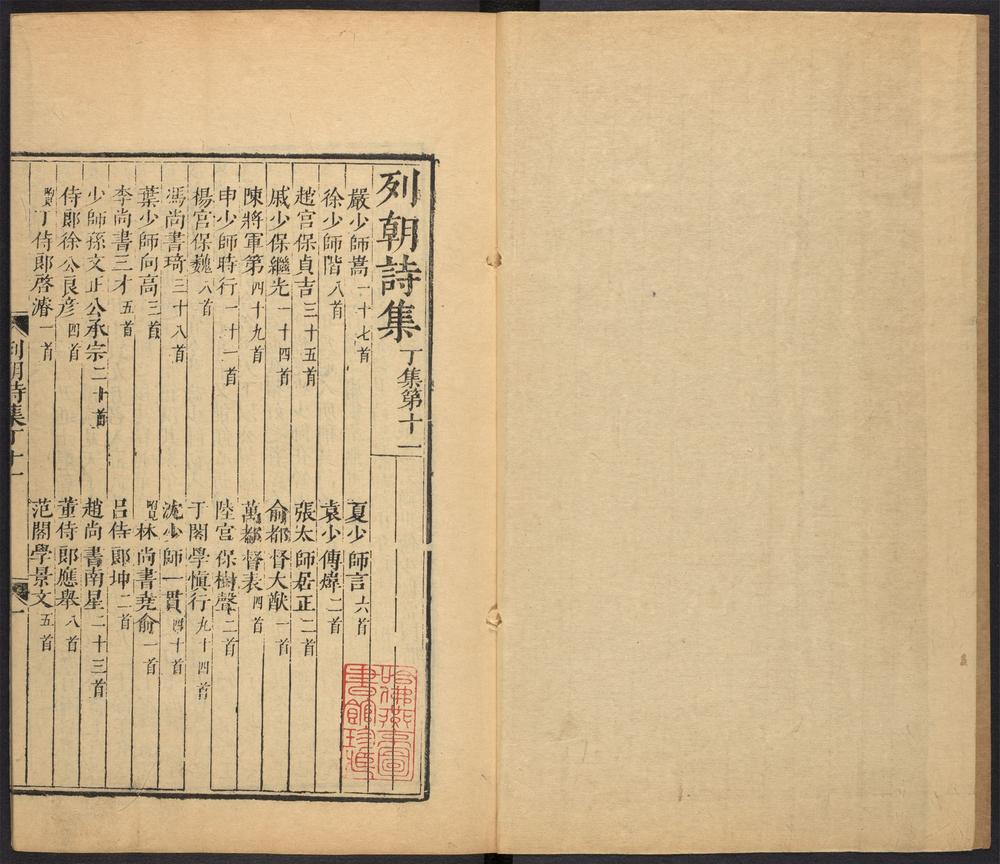 列朝詩集 丁集第十一
嚴少師嵩 一十七首 夏少師言 六首
徐少師階 八首 袁少傅煒 二首
趙宫保貞吉 三十五首 張太師居正 二首
戚少保繼光 一十四首 俞都督大猷 一首
陳將軍第 四十九首 萬都督表 四首
申少師時行 一十一首 陸宫保樹聲 二首
楊宫保巍 八首 于閣學慎行 九十四首
馮尚書琦 三十八首 沈少師一貫 四十首
葉少師向高 三首 附見林尚書堯俞 一首
李尚書三才 五首 吕侍郎坤 二首
少師孫文正公承宗 二十首 趙尚書南星 二十三首
侍郎徐公良彦 四首 董侍郎應舉 八首
附見丁侍郎啓濬 一首 范閣學景文 五首
列朝詩集丁十一 一
哈佛燕
書館珍